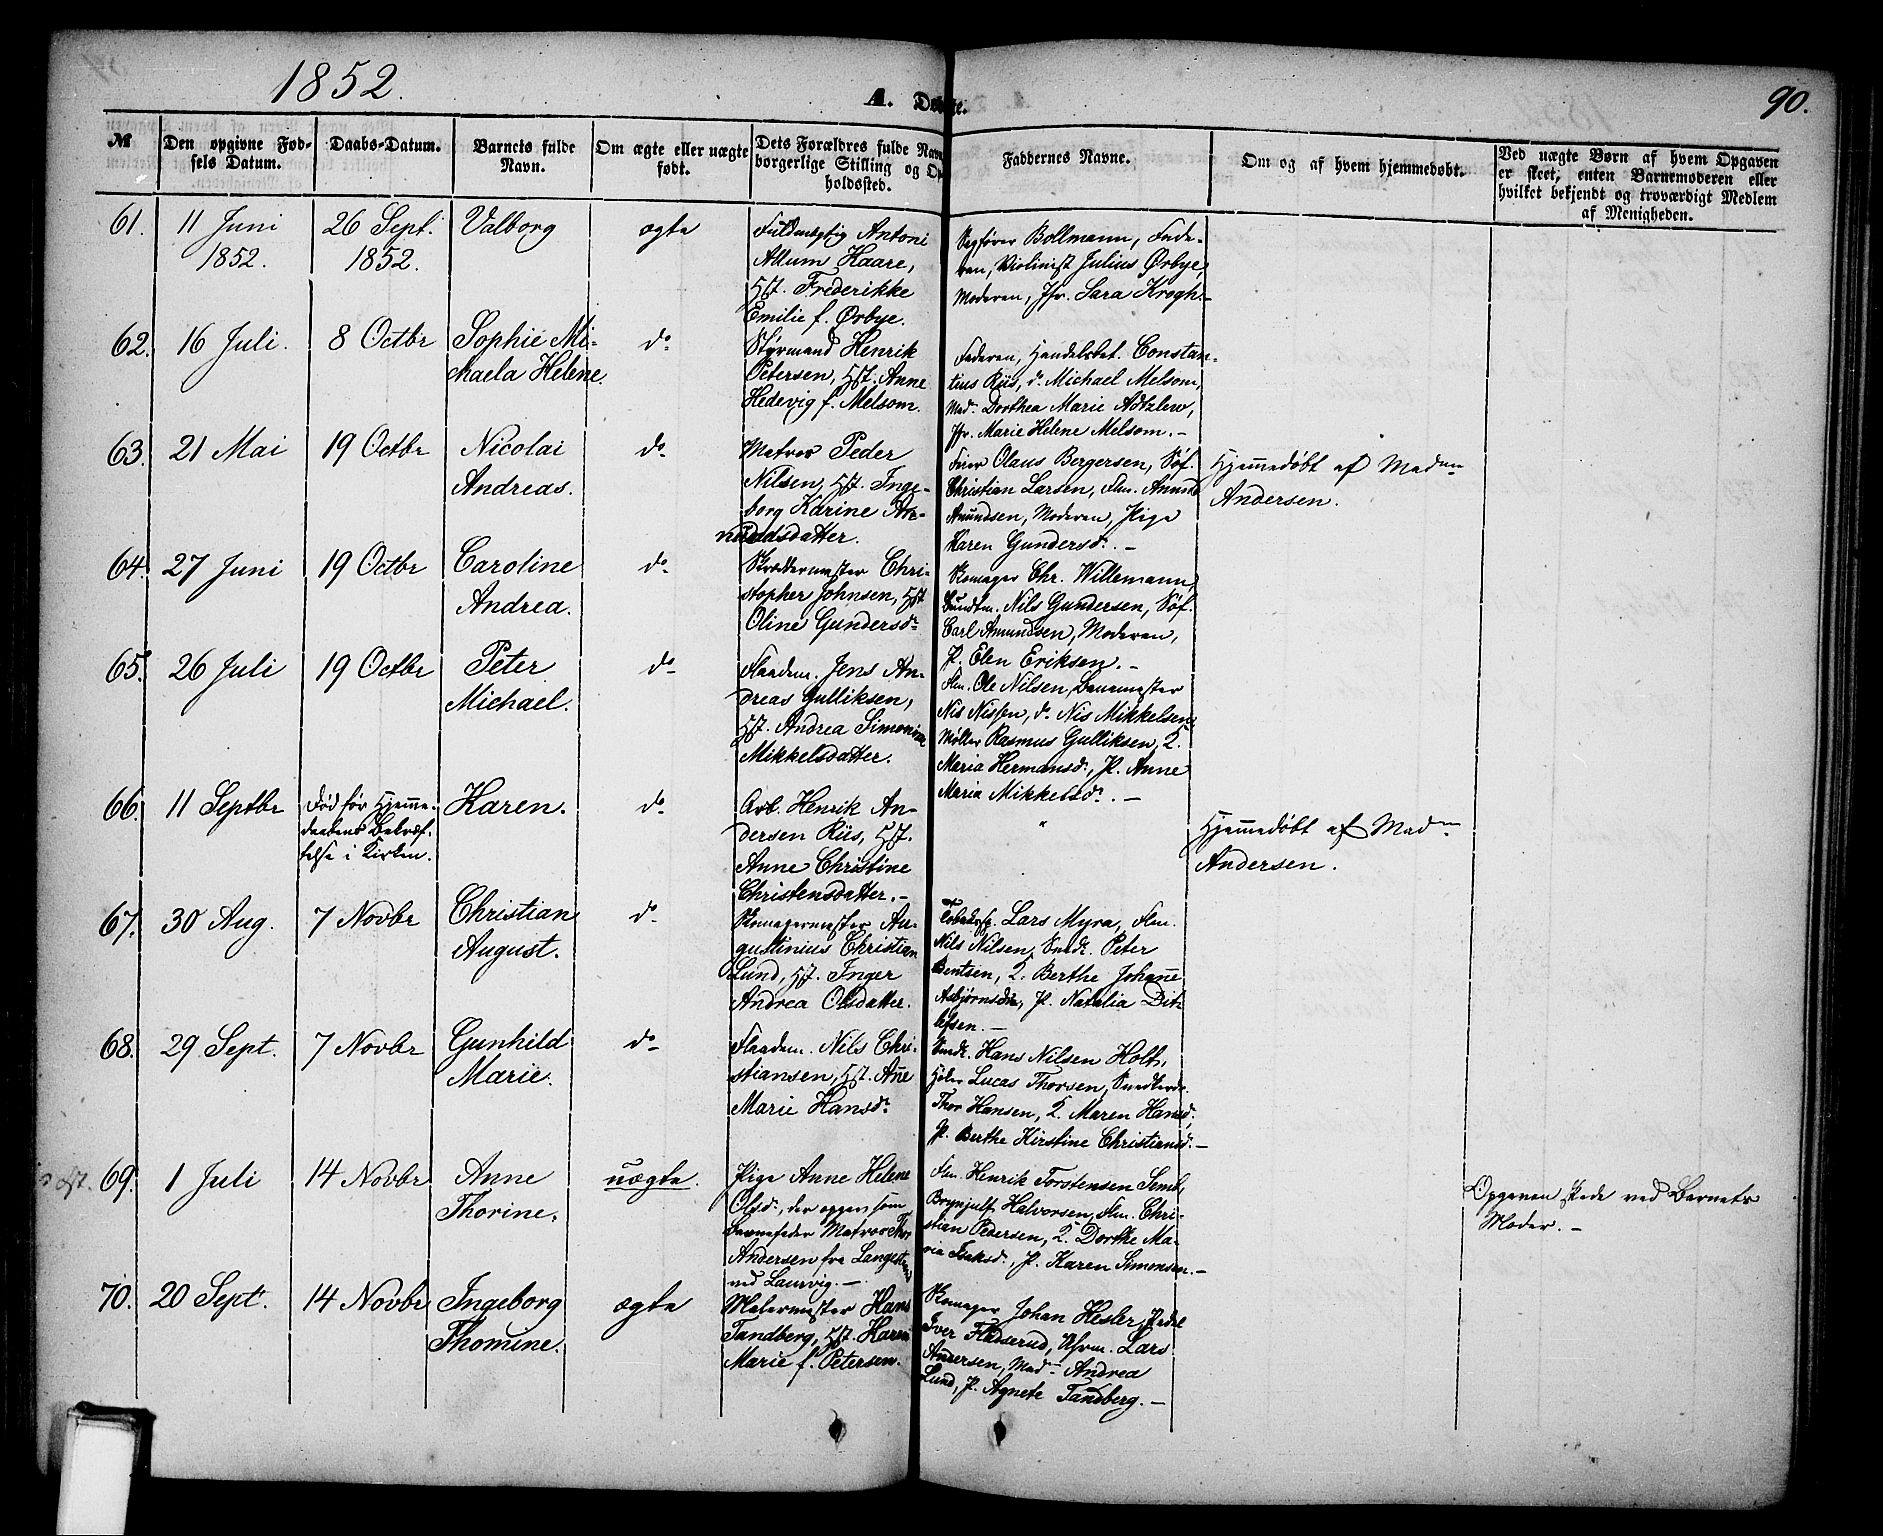 1852.
A. Døbte.
90.
№
Den opgivne Fød-
sels Datum.
Daabs-Datum.
Barnets fulde
Navn.
Om ægte eller uægte
født.
Dets Forældres fulde Navn
borgerlige Stilling og O
holdssted.
Faddernes Navne.
Om og af hvem hjemmedøbt.
Ved uægte Børn af hvem Opgaven
er skeet, enten Barnemoderen eller
hvilket bekjendt og troværdigt Medlem
af Menigheden.
61.
11 Juni
1852.
26 Sept.
1852.
Valborg
ægte
Fuldmægtig Antoni
Allum Haare,
Hst. Frederikke
Emilie f. Ørbye.
Sagfører Bollmann, Fade-
ren, Violinist Julius Ørbye,
Moderen, Jfr. Sara Krogh.-
62.
16 Juli.
8 Octbr
Sophie Mi-
chaela Helene.
do
Styrmand Henrik
Petersen, Hst. Anne
Hedevig f. Melsom.
Faderen, Handelsbet. Constan-
tius Riis, do Michael Melsom,
Mad. Dorthea Marie Adtzlew,
Jfr. Marie Helene Melsom.-
63.
21 Mai
19 Octbr
Nicolai
Andreas.
do
Matros Peder
Nilsen, Hst. Inge-
borg Karine
datter.
Olaus Bergersen, Søf.
Christian Larsen, Flm. Amund
Amundsen, Moderen, Pige
Karen Gundersdr.-
Hjemmedøbt af Madm
Andersen.
64.
27 Juni
19 Octbr
Caroline
Andrea.
do
Skræddermester Chri-
stopher Johnsen, Hst.
Oline Gundersdr
Skomager Chr. Willemann
Bundtm. Nils Gundersen, Søf.
Carl Amundsen, Moderen,
P. Elen Eriksen.-
65.
26 Juli
19 Octbr
Peter
Michael.
do
Flaadem. Jens An-
dreas Gulliksen,
Hst. Andrea Simonine
Mikkelsdatter.
Flm. Ole Nilsen, Banemester
Nis Nissen, do Nis Mikkelsen,
Møller Rasmus Gulliksen, K.
Maria Hermansdr., P. Anne
Maria Mikkelsdr.-
66.
11 Septbr
Død før Hjemme-
daabens Bekræf-
telse i Kirken.
Karen.
do
Arb. Henrik An-
dersen Riis, Hst.
Anne Christine
Christensdatter.-
"
Hjemmedøbt af Madm
Andersen.
67.
30 Aug.
7 Novbr
Christian
August.
do
Skomagermester Au-
gustinius Christian
Lund, Hst. Inger
Andrea Olsdatter.
Lars Myra, Flm.
Nils Nilsen, Snedk. Peter
Bentsen, K. Berthe Johanne
Asbjørnsdtr, P. Natalia Dit-
lefsen.-
68.
29 Sept.
7 Novbr
Gunhild
Marie.
do
Flaadem. Nils Chri-
stiansen, Hst. Anne
Marie Hansdr.
Snedk. Hans Nilsen Holt,
Lucas Thorsen, Snedkerdr.
Thor Hansen, K. Maren Hansd.,
P. Berthe Kirstine Christiansd.-
69.
1 Juli
14 Novbr
Anne
Thorine.
uægte.
Pige Anne Helene
Olsdr., der opgav som
Barnefader Matros Thor
Andersen fra Langestrand
ved Laurvig.-
Flm. Henrik Torstensen Semb,
Brynjulf Halvorsen, Flm. Chri-
stian Pedersen, K. Dorthe Ma-
ria Isaksd., P. Karen Simonsen.-
Opgaven skede ved Barnets
Moder.-
70.
20 Sept.
14 Novbr
Ingeborg
Thomine.
ægte
Malermester Hans
Tandberg, Hst. Karen
Marie f. Petersen.
Skomager Johan Hesler,
Iver Fladserud, Lars
Andersen, Mad. Andrea
Lund, P. Agnete Tandberg.-